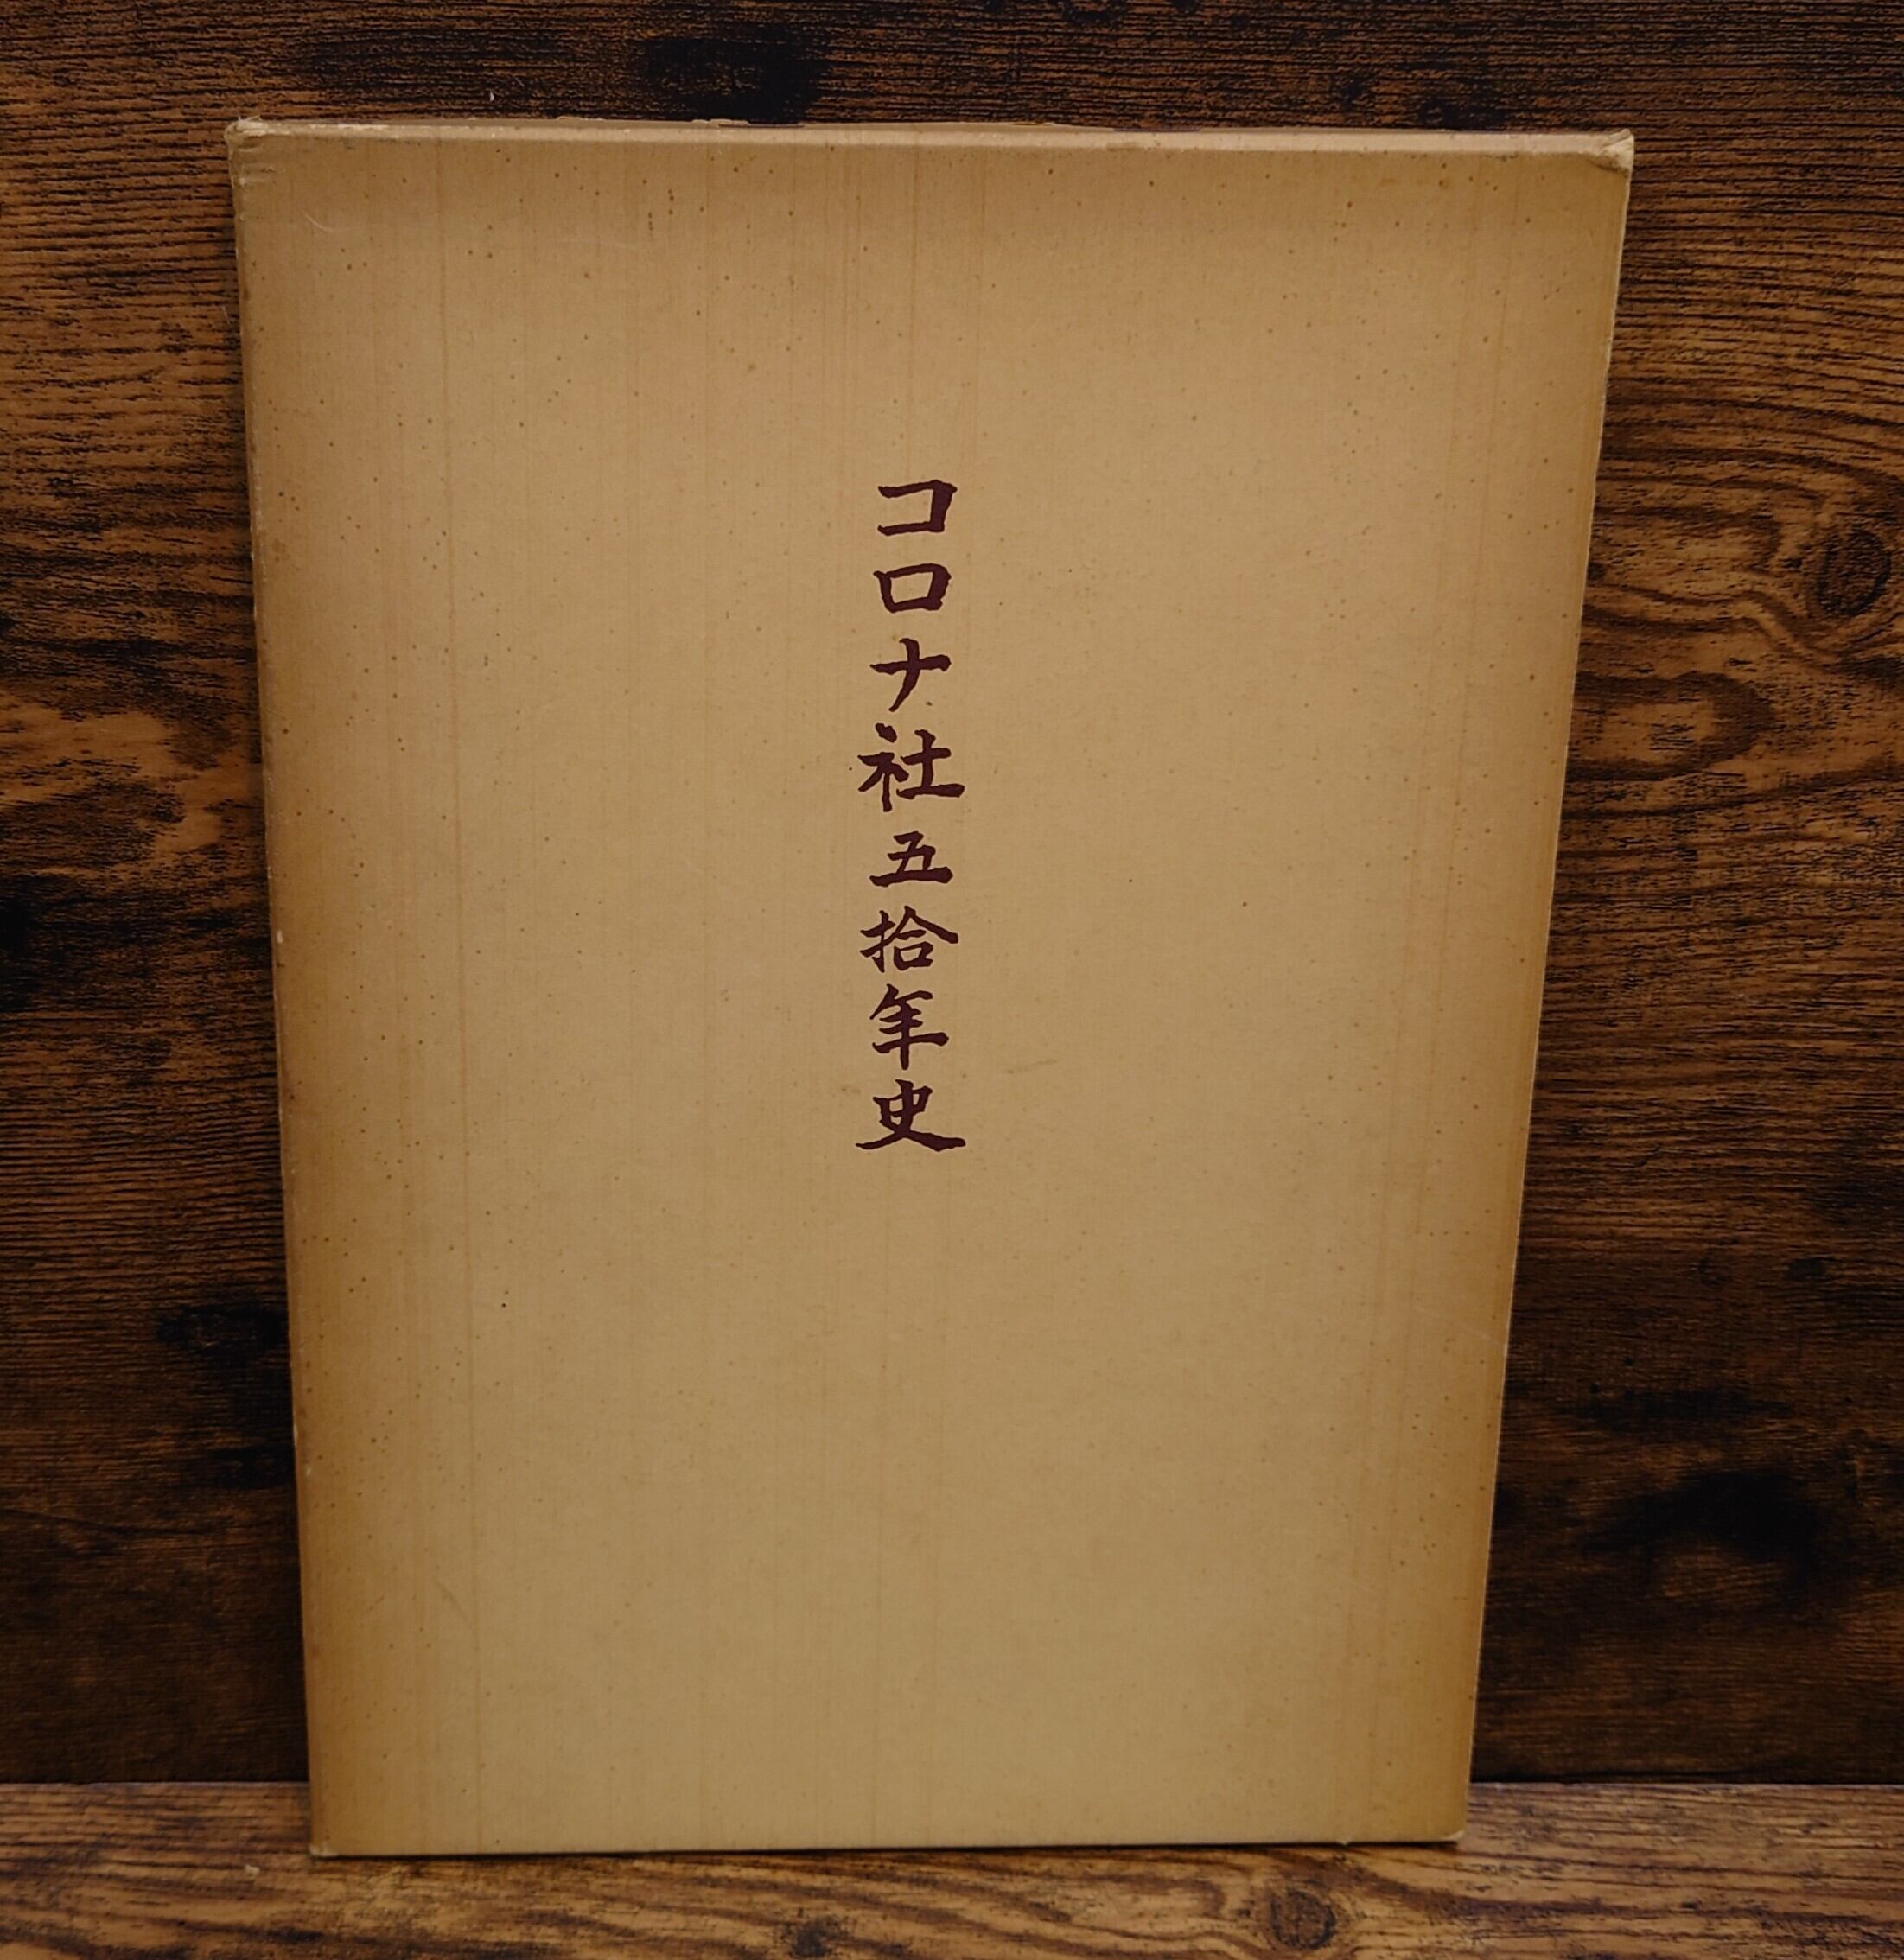 コロナ社五拾年史